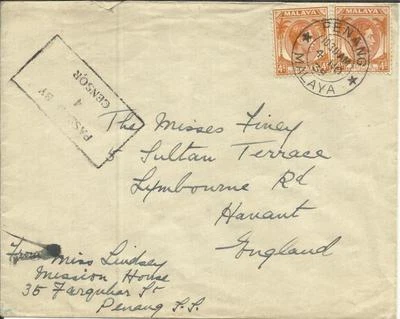 MALAYA MALAYA
PENANG
MALAYA
PASSED BY
4
CENSOR
The Misses Finey
5 Sultan Terrace
Lymbourne Rd
Havant
England
From Miss Lindsey
Mission House
35 Farquhar St
Penang S.S.